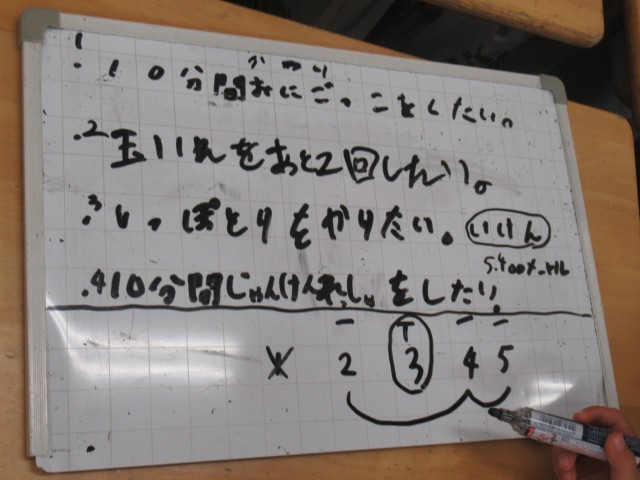 かわり
.1 10分間おにごっこをしたい。
.2 玉いれをあと2回したい。
.3 しっぽとりをやりたい。 いけん
5.400メートル
.4 10分間じゃんけんれっしゃをしたい。
2 3 4 5